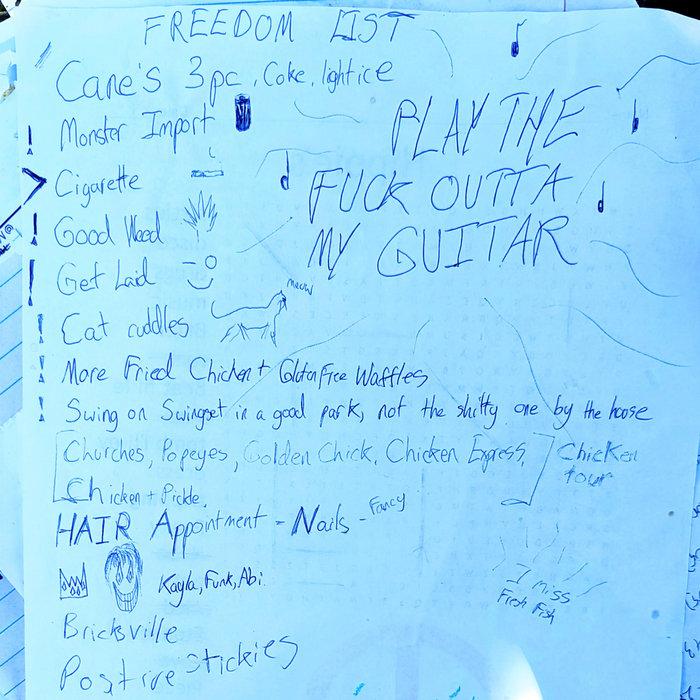 FREEDOM LIST
Cane's 3pc, Coke, light ice
! Monster Import
PLAY THE
FUCK OUTTA
MY GUITAR
Cigarette
! Good Weed
! Get Laid
meow
! Cat cuddles
! More Fried Chicken + Gluten Free Waffles
! Swing on Swingset in a good park, not the shitty one by the house
[Churches, Popeyes, Golden Chick, Chicken Express,
Chicken + Pickle.]
Chicken
tour
HAIR Appointment - Nails - Fancy
Kayla, Funk, Abi
I miss
Fresh Fish
Bricksville
Positive Stickies